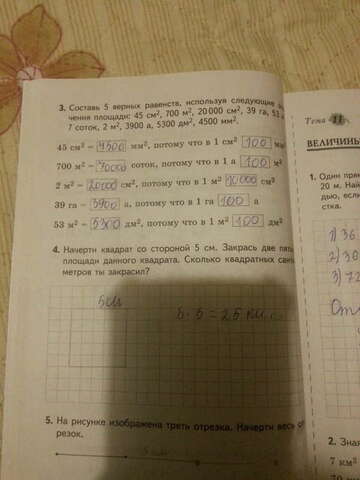 3. Составь 5 верных равенств, используя следующие
чения площади: 45 см², 700 м², 20 000 см², 39 га, 53
7 соток, 2 м², 3900 а, 5300 дм², 4500 мм².
45 см² = 4500 мм², потому что в 1 см² 100 мм²
700 м² = 70000 соток, потому что в 1 а 100 м²
2 м² = 20000 см², потому что в 1 м² 10000 см²
39 га = 3900 а, потому что в 1 га 100 а
53 м² = 5300 дм², потому что в 1 м² 100 дм²
4. Начерти квадрат со стороной 5 см. Закрась две пят
площади данного квадрата. Сколько квадратных сан
метров ты закрасил?
5см
5 · 5 = 25 кв.с
5. На рисунке изображена треть отрезка. Начерти весь от
резок.
Тема 11
ВЕЛИЧИНЫ
1. Один пря
20 м. Най
дью, если
стка.
1) 36
2) 30
3) 72
Отв
2. Зная
7 км²